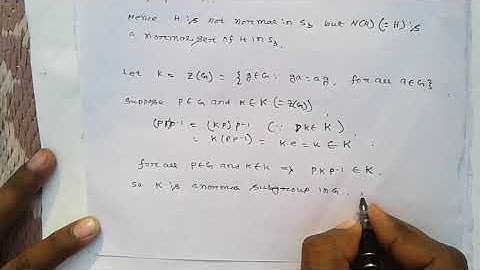 Hence H is not normal in S3 but N(H) (= H) is
a normalizer of H in S3.
Let K = Z(G) = {g ∈ G : ga = ag, for all a ∈ G}
Suppose p ∈ G and k ∈ K (= Z(G))
= (kp) p-1 (∵ pk ∈ K)
= k (pp-1) = k.e = k ∈ K.
for all p ∈ G and k ∈ K ⇒ pkp-1 ∈ K.
so K is a normal subgroup in G.